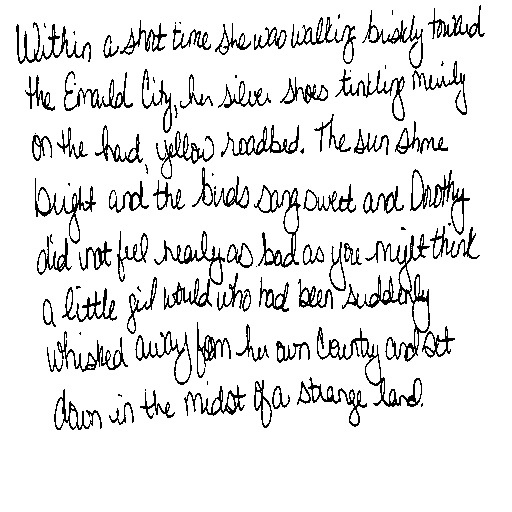 Within a short time she was walking briskly toward
the Emerald City, her silver shoes tinkling merrily
on the hard, yellow roadbed. The sun shone
bright and the birds sang sweet and Dorothy
did not feel nearly as bad as you might think
a little girl would who had been suddenly
whisked away from her own country and set
down in the midst of a strange land.